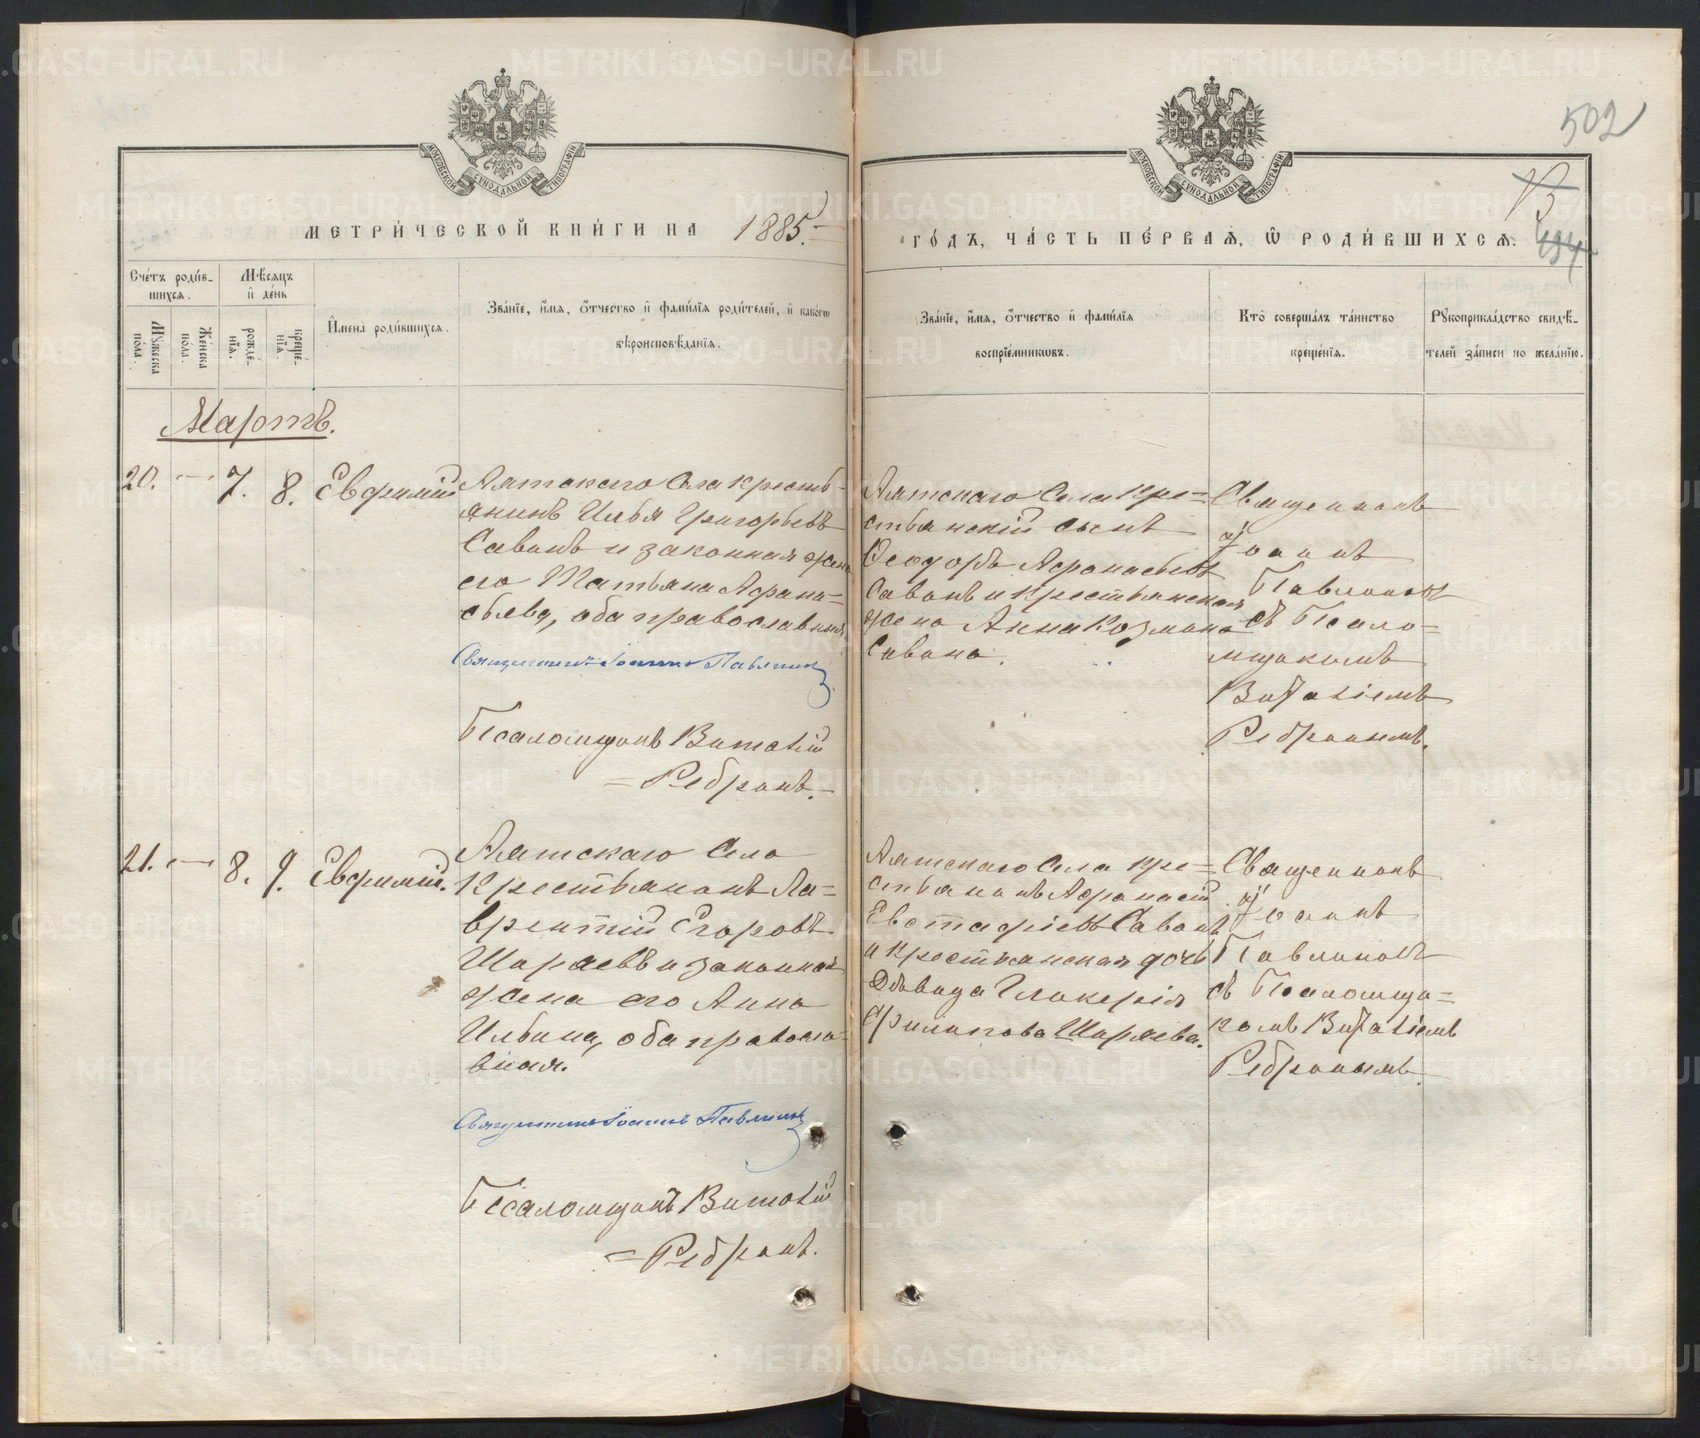 502
13
194
МЕТРИ́ЧЕСКОЙ КНИ́ГИ НА 1885.
ГО́ДЪ, ЧА́СТЬ ПЕ́РВАЯ, Ѡ РОДИ́ВШИХСЯ.
Сче́тъ роди́в-
шихся.
Му́жеска по́ла.
Же́нска по́ла.
Мѣ́сяцъ
и де́нь
рожде́-
нїя.
креще́-
нїя.
И́мена роди́вшихся.
Зва́нїе, и́мя, о́тчество и фами́лїя роди́телей, и како́гѡ
вѣроисповѣ́данїя.
Зва́нїе, и́мя, о́тчество и фами́лїя
воспрїе́мникѡвъ.
Кто̀ соверша́лъ та́инство
креще́нїя.
Рꙋкоприкла́дство свидѣ́-
телей за́писи по жела́нїю.
Мартъ.
20. — 7. 8. Евфимій
Аятскаго Села кресть-
янинъ Илья Григорьевъ
Савинъ и законная жена
его Татьяна Афана=
сьева, оба православные.
Священникъ Іоаннъ Павлиновъ
Псаломщикъ Виталій
= Ребринъ.
Аятскаго Села кре=
стьянскій сынъ
Ѳеодоръ Афанасьевъ
Савинъ и крестьянская
жена Анна Козмина
Савина.
Священникъ
Іоаннъ
Павлиновъ
съ Псало=
мщикомъ
Виталіемъ
Ребринымъ.
21. — 8. 9. Евфимій.
Аятскаго Села
Крестьянинъ Ла=
врентій Егоровъ
Ширяевъ и законная
жена его Анна
Ильина, оба правосла=
вная.
Священникъ Іоаннъ Павлиновъ
Псаломщикъ Виталій
= Ребринъ.
Аятскаго Села кре=
стьянинъ Афанасій
Евстафіевъ Савинъ
и крестьянская дочь
Дѣвица Гликерія
Филипова Ширяева.
Священникъ
Іоаннъ
Павлиновъ
съ Псаломщи=
комъ Виталіемъ
Ребринымъ.